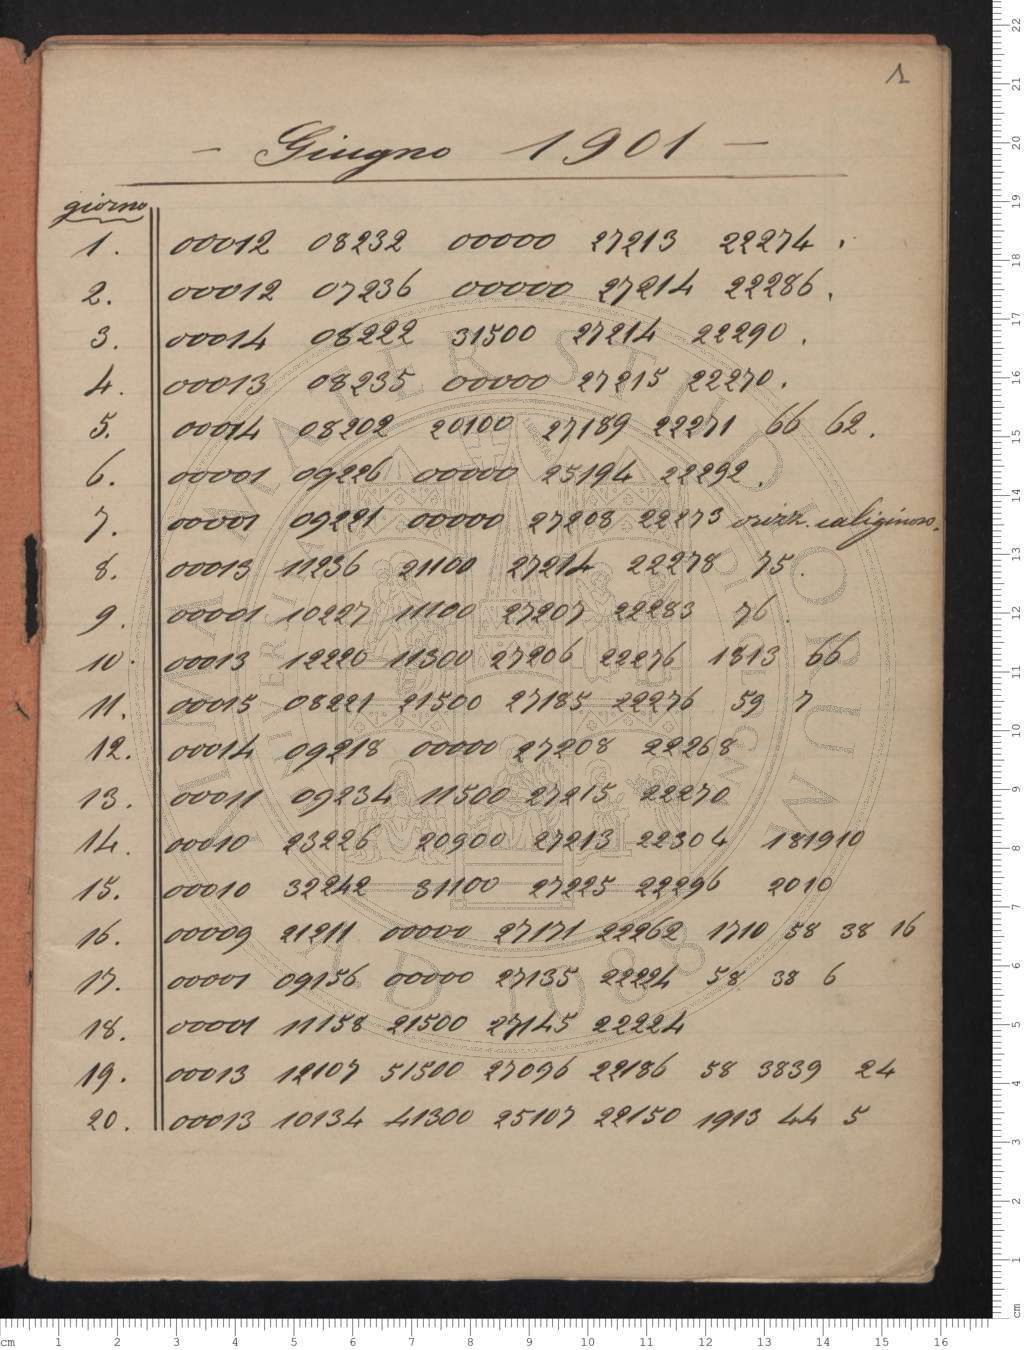 1
- Giugno 1901 -
giorno
1. 00012 08232 00000 27213 22274 .
2. 00012 07236 00000 27214 22286 .
3. 00014 08222 31500 27214 22290 .
4. 00013 08235 00000 27215 22270 .
5. 00014 08202 20100 27189 22271 66 62 .
6. 00001 09226 00000 25194 22292 .
7. 00001 09221 00000 27208 22273 orizz. caliginoso.
8. 00013 11236 21100 27214 22278 75 .
9. 00001 10227 11100 27207 22283 76 .
10. 00013 12220 11300 27206 22276 1813 66
11. 00015 08221 21500 27185 22276 59 7
12. 00014 09218 00000 27208 22268
13. 00011 09234 11500 27215 22270
14. 00010 23226 20900 27213 22304 181910
15. 00010 32242 31100 27225 22296 2010
16. 00009 21211 00000 27171 22262 1710 58 38 16
17. 00001 09156 00000 27135 22224 58 38 6
18. 00001 11158 21500 27145 22224
19. 00013 12107 51500 27096 22186 58 3839 24
20. 00013 10134 41300 25107 22150 1913 44 5